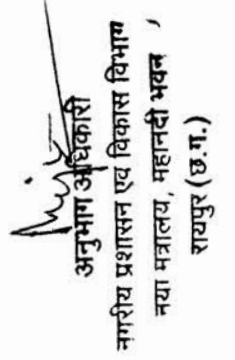 अनुभाग अधिकारी
नगरीय प्रशासन एवं विकास विभाग
नया मंत्रालय, महानदी भवन,
रायपुर (छ.ग.)